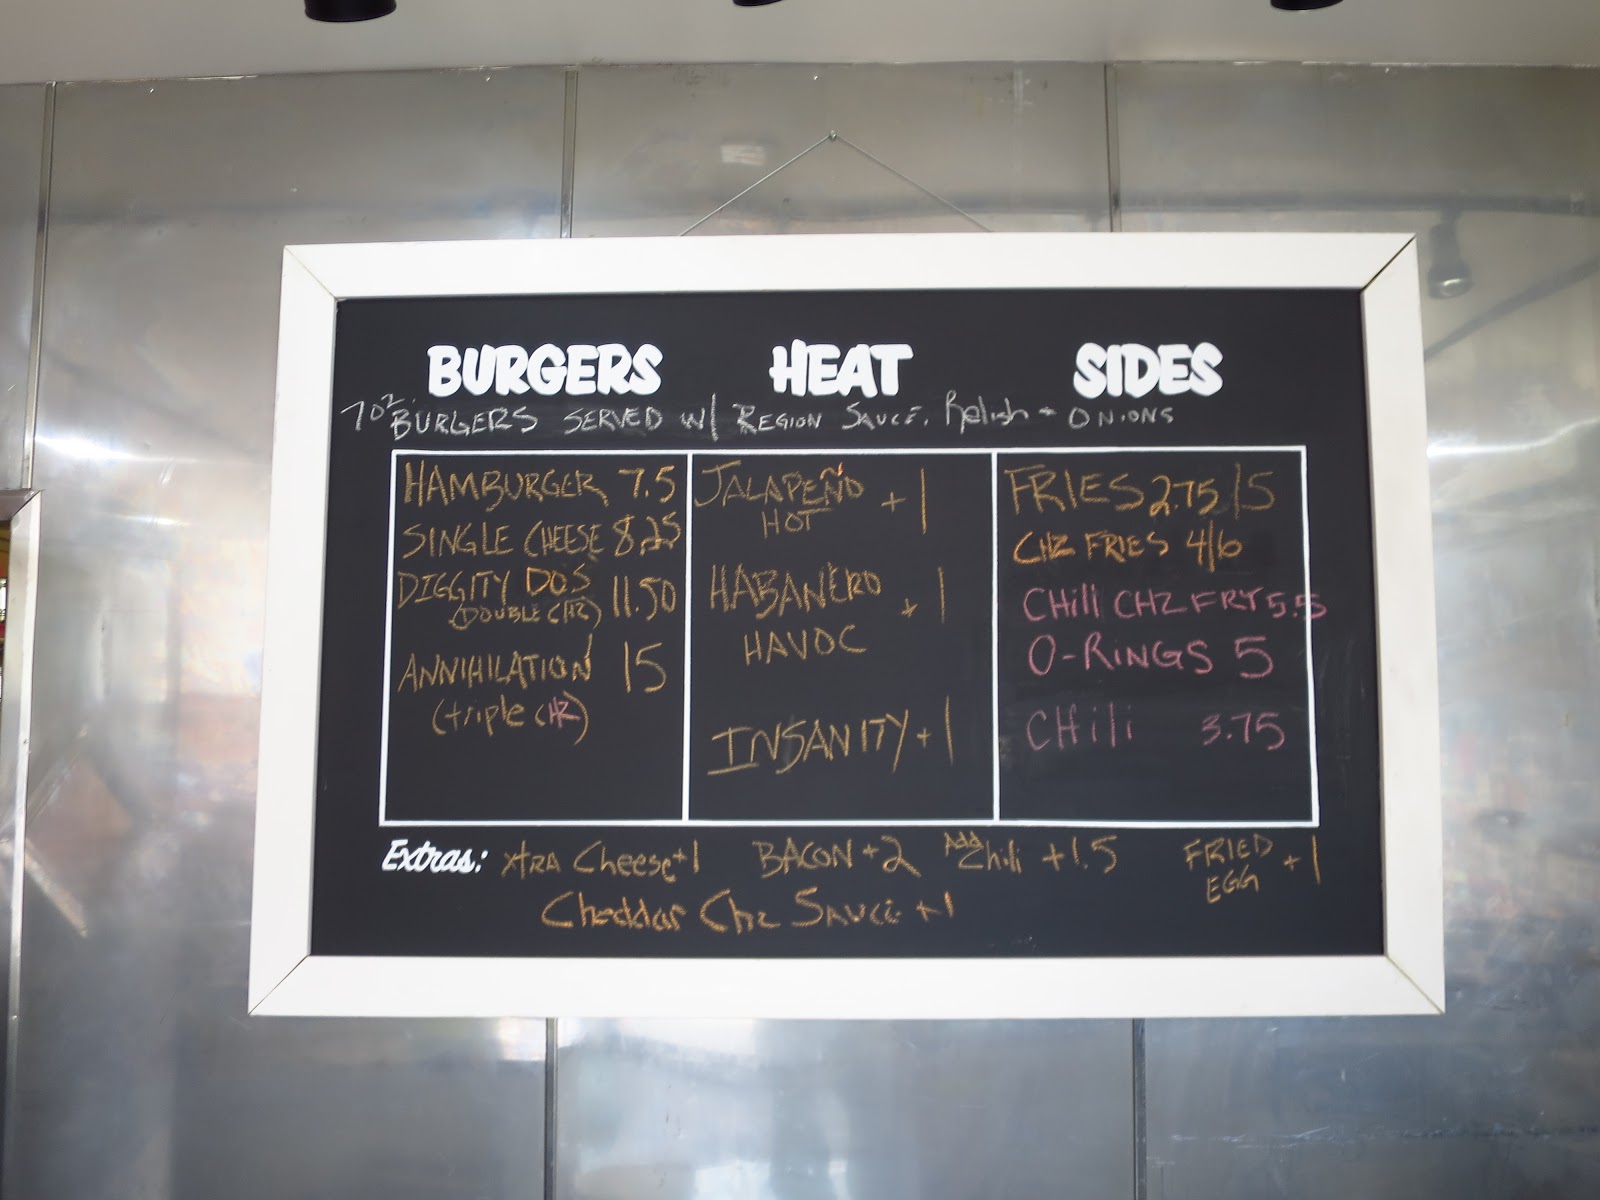 BURGERS HEAT SIDES
7oz. BURGERS SERVED W/ REGION SAUCE, Relish + ONIONS
HAMBURGER 7.5
SINGLE CHEESE 8.25
DIGGITY DOS 11.50
(DOUBLE CHZ)
ANNIHILATION 15
(triple CHZ)
JALAPEÑO + 1
HOT
HABANERO + 1
HAVOC
INSANITY + 1
FRIES 2.75/5
CHZ FRIES 4/6
CHill CHZ FRY 5.5
O-RINGS 5
CHili 3.75
Extras: XTRA Cheese +1 BACON +2 Add Chili +1.5 FRIED EGG +1
Cheddar Chz SAUCE +1